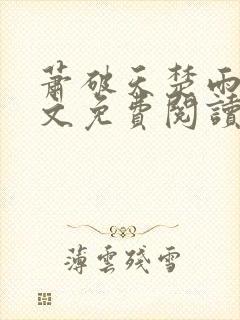 蕭破天楚雨
文免費閱讀
薄雲殘雪